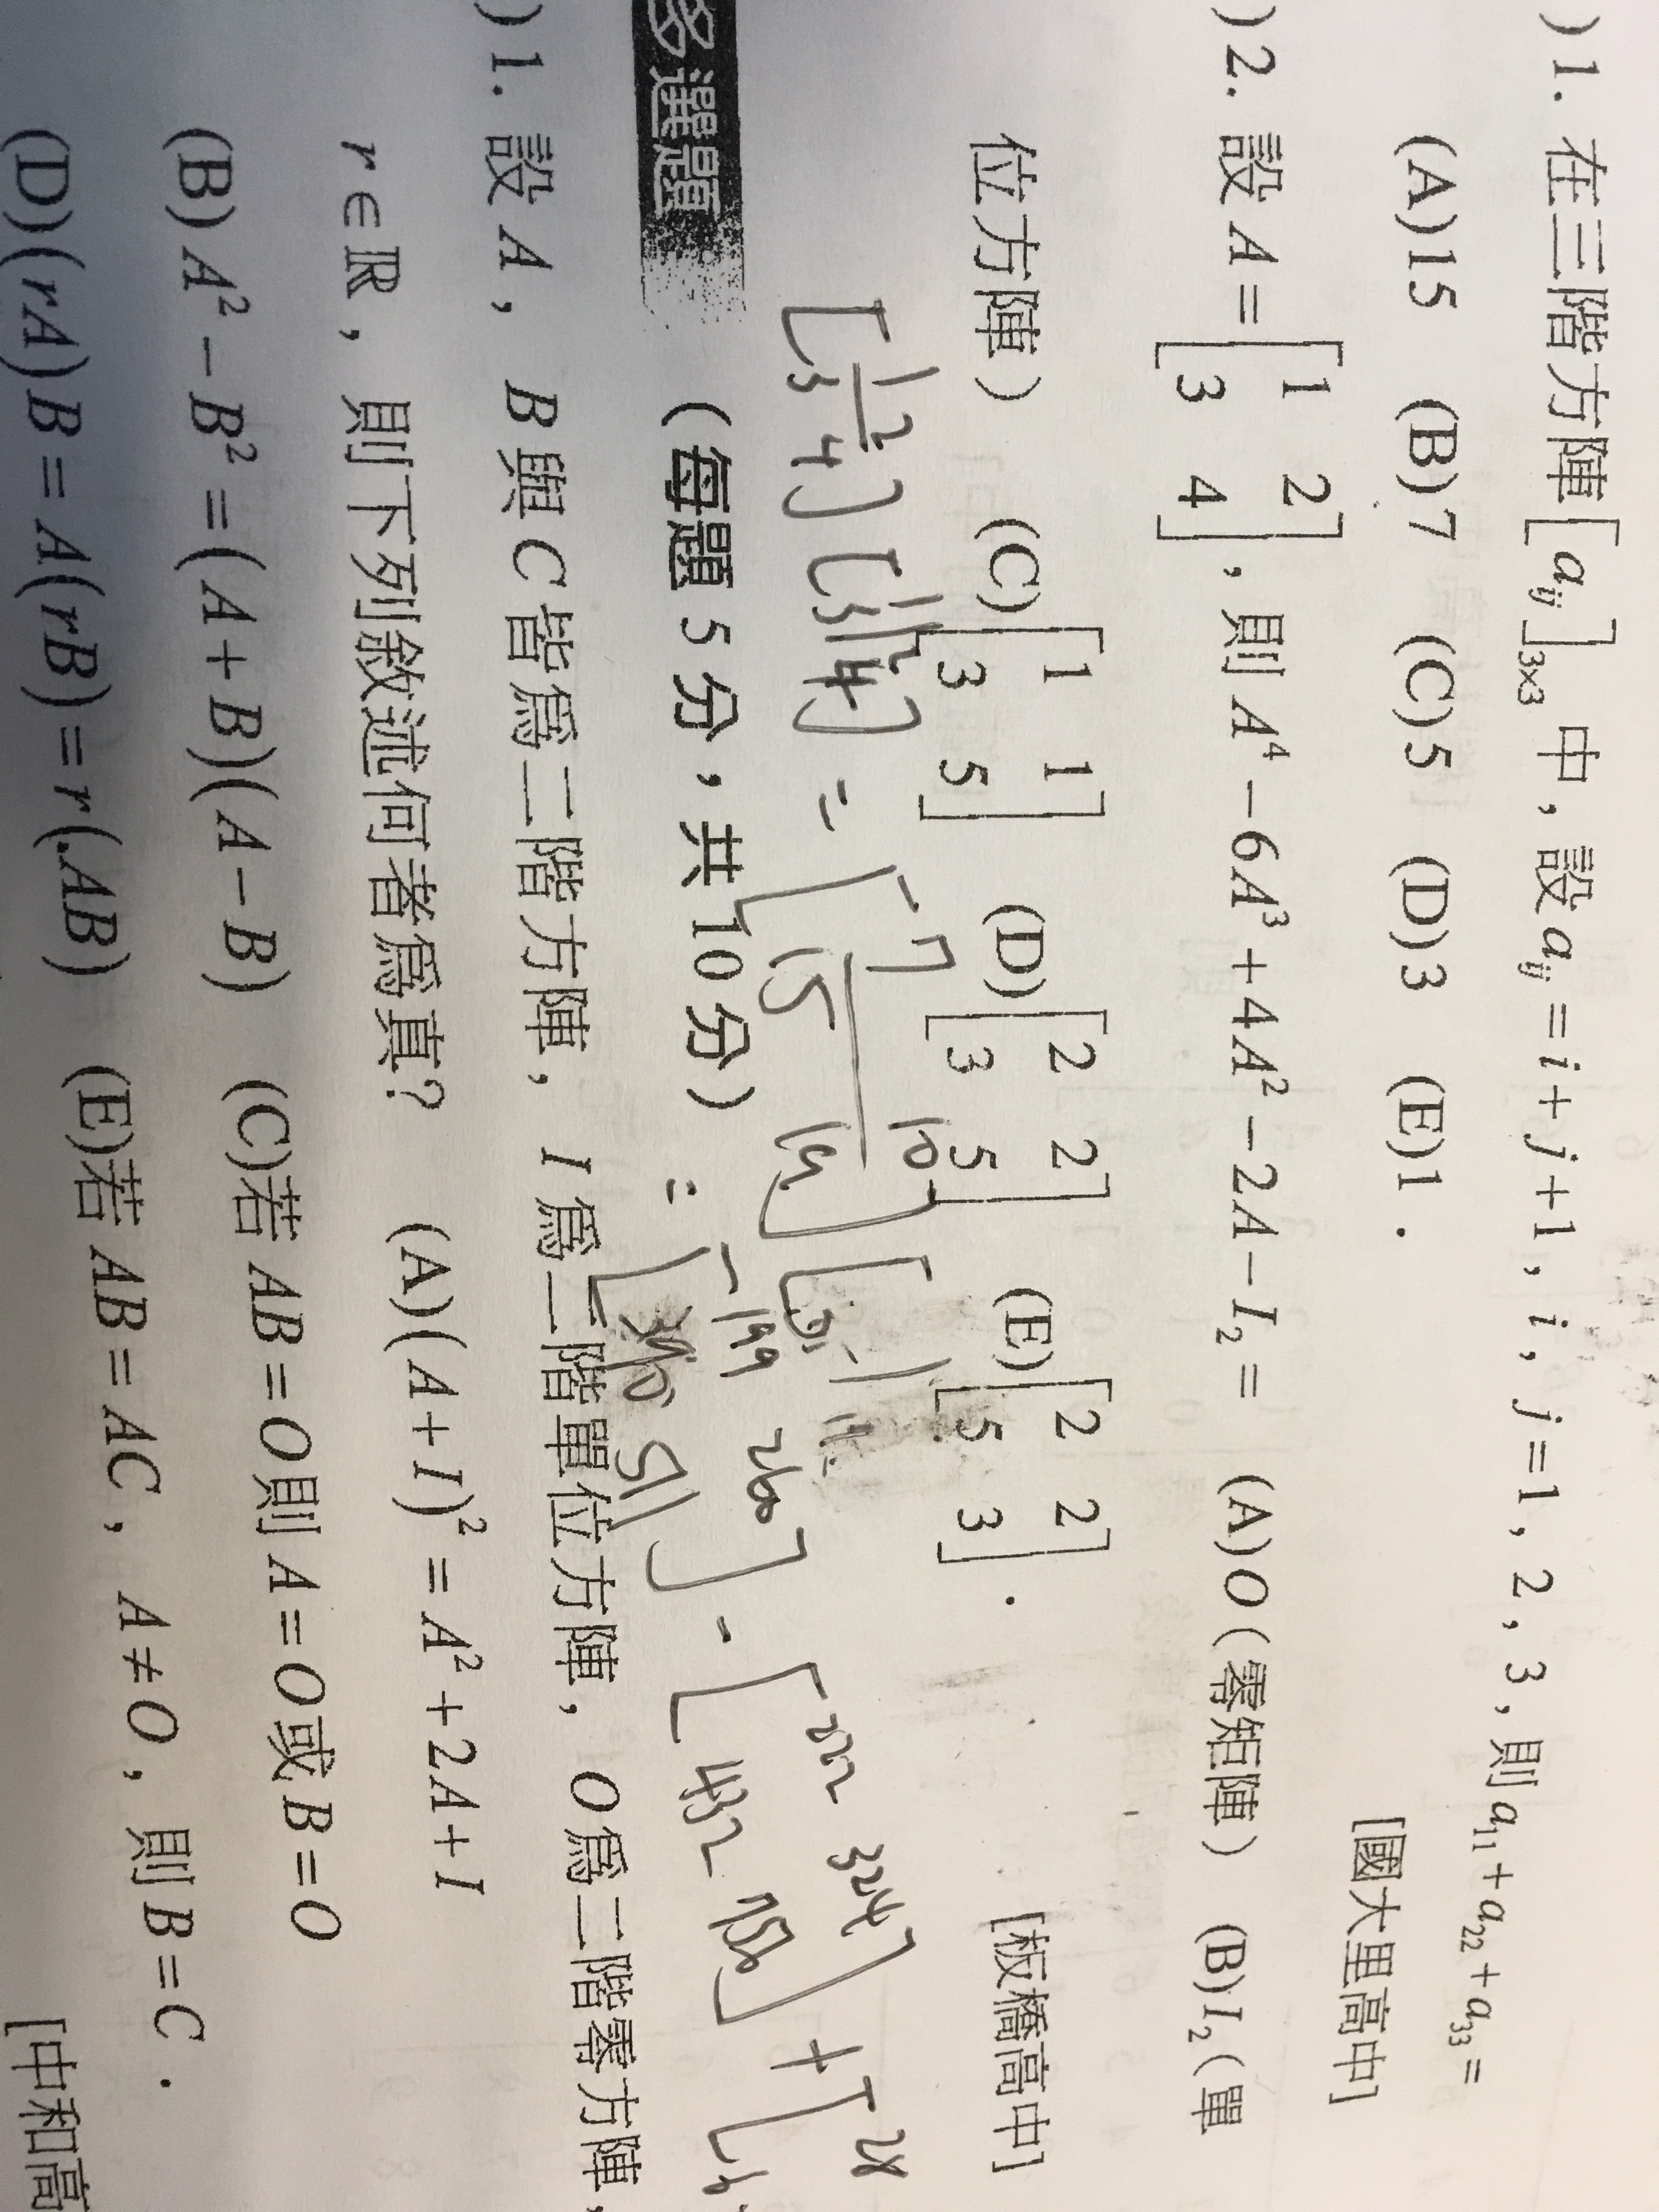 )1. 在三階方陣[aᵢⱼ]₃ₓ₃中，設aᵢⱼ=i+j+1，i，j=1，2，3，則a₁₁+a₂₂+a₃₃=
[國大里高中]
(A)15 (B)7 (C)5 (D)3 (E)1．
)2. 設A=[1 2; 3 4]，則A⁴−6A³+4A²−2A−I₂= (A)O（零矩陣） (B)I₂（單
位方陣） (C)[1 1; 3 5] (D)[2 2; 3 5] (E)[2 2; 5 3]． [板橋高中]
[1 2; 3 4][1 2; 3 4] = [7 10; 15
= [199 260] - [222 324; 432 ] + [28
多選題 （每題5分，共10分）
)1. 設A，B與C皆為二階方陣，I為二階單位方陣，O為二階零方陣，
r∈ℝ，則下列敘述何者為真？ (A)(A+I)²=A²+2A+I
(B)A²−B²=(A+B)(A−B) (C)若AB=O則A=O或B=O
(D)(rA)B=A(rB)=r(AB) (E)若AB=AC，A≠O，則B=C．
[中和高